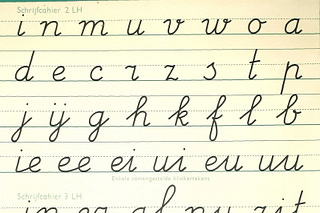 Schrijfcahier 2 LH
i n m u v w o a
d e c r z s t p
j ij g h k f l b
ie ee ei ui eu uu
Enkele samengestelde klinkertekens
Schrijfcahier 3 LH